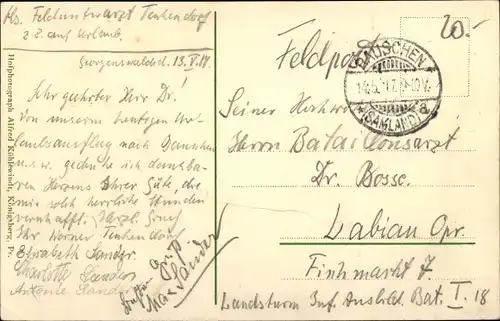 Abs. Feldunterarzt Tenkendorf
z. Z. auf Urlaub.
Georgenswalde d. 13. V. 17
Sehr geehrter Herr Dr.!
Von unserem heutigen Ur-
laubsausflug nach
u.s.w. gedenke ich dankba-
ren Herzens Ihrer Güte, die
mir solch herrliche Stunden
verschafft. Herzl. Gruß
Ihr Werner Tenkendorf
Elisabeth Sander.
Charlotte Sander
Antonie Sander
Gruß
Max Sander
Hofphotograph Alfred Kühlewindt, Königsberg, Pr.
Feldpost
20.-
RAUSCHEN
(SAMLAND)
a
Seiner Hochwohl
Herrn Bataillonsarzt
Dr. Bosse.
Labiau Opr.
Fischmarkt 7.
Landsturm Inf. Ausbild. Bat. I. 18